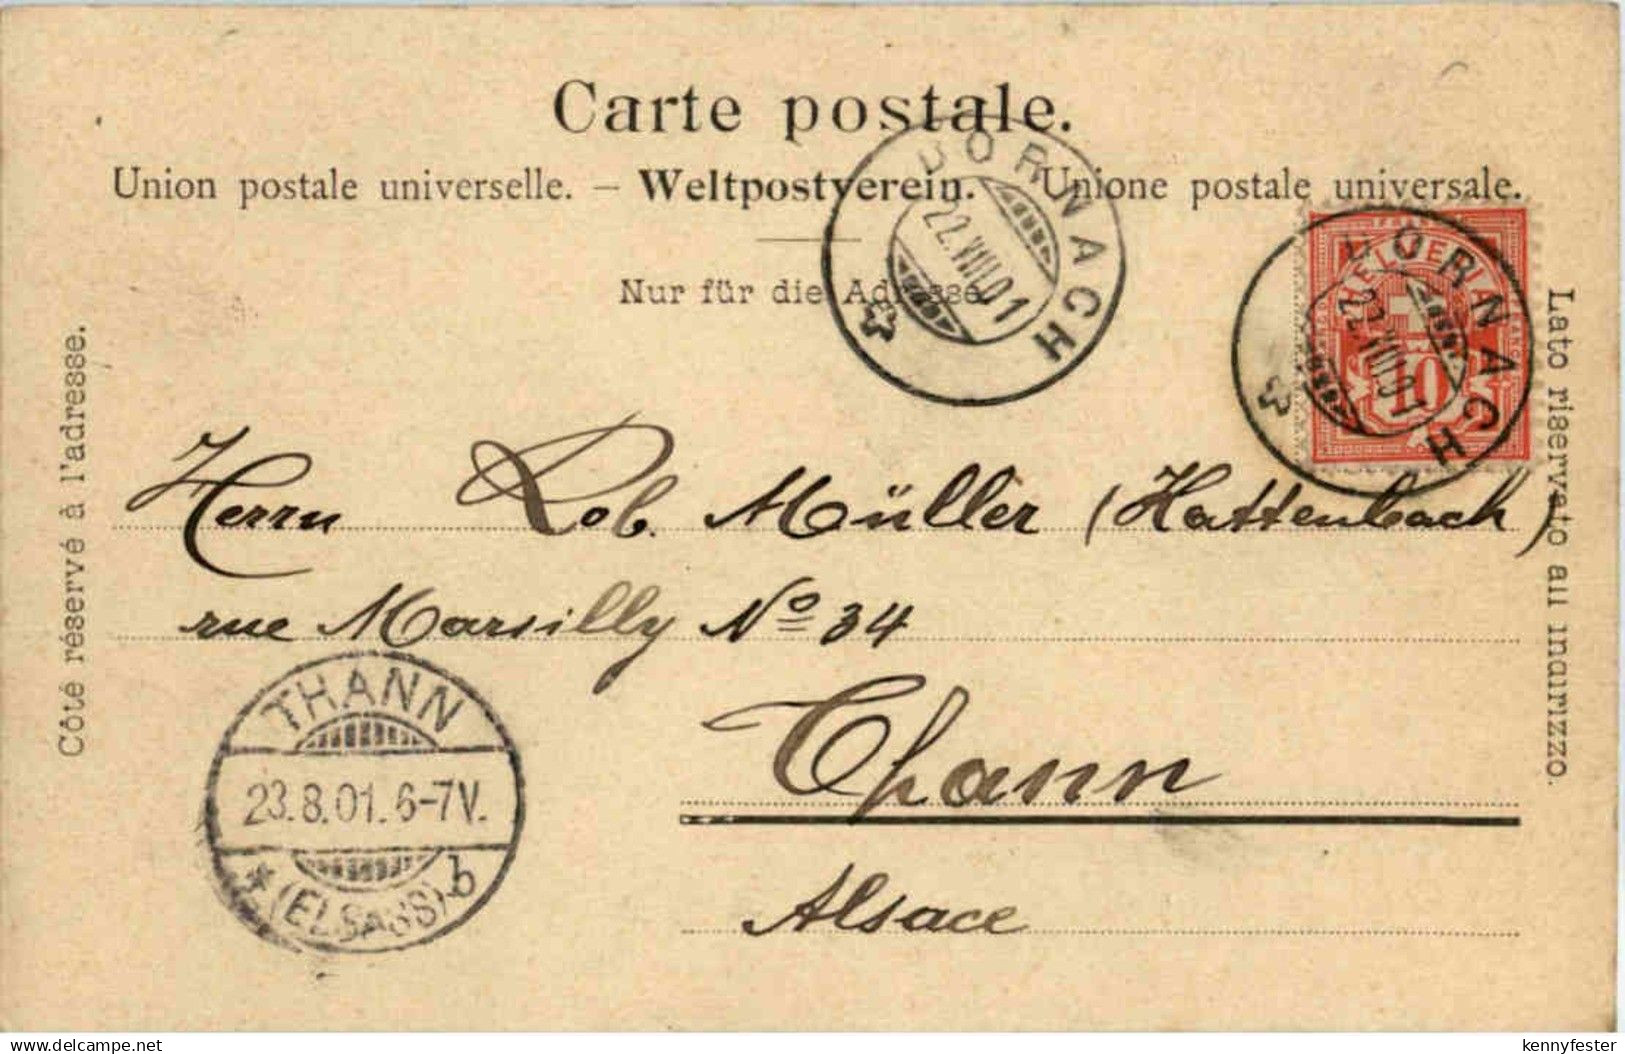 Carte postale.
Union postale universelle. – Weltpostverein. – Unione postale universale.
Nur für die Adresse.
DORNACH
22.VIII.01
HELVETIA
10
DORNACH
22.VIII.01
Côté réservé à l'adresse.
Lato riservato all indirizzo.
Herrn Rob. Müller (Hattenbach)
rue Marsilly No 34
Thann
Alsace
THANN
23.8.01.6-7V.
* (ELSASS) b
www.delcampe.net
kennyfester